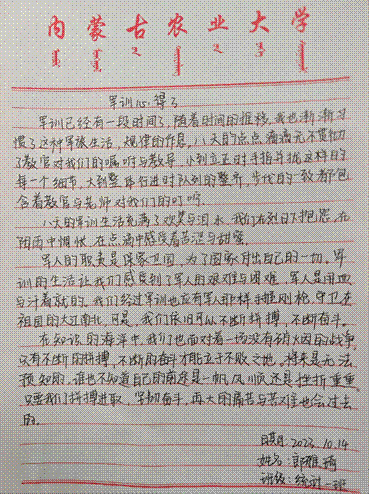 内蒙古农业大学
军训心得
军训已经有一段时间了,随着时间的推移,我也渐渐习
惯了这种军旅生活,规律的作息,八天的点点滴滴无不贯彻
了教官对我们的嘱咐与教导,小到立正时手指并拢这样的
每一个细节,大到整体行进时队列的整齐,步伐的一致都包
含着教官与老师对我们的叮咛。
八天的军训生活充满了欢笑与泪水,我们在烈日下抱怨,在
阴雨中惆怅,在点滴中感受着苦涩与甜蜜。
军人的职责是保家卫国,为了国家付出自己的一切,军
训的生活让我们感受到了军人的艰难与困难,军人是用血
与汗着就的,我们经过军训也应有军人那样挺刚枪,守卫在
祖国的大江南北,只是,我们依旧可以不断拼搏,不断奋斗。
在知识的海洋中,我们也面对着一场没有硝烟的战争,
只有不断的拼搏,不断的奋斗才能立于不败之地,将来是无法
预知的,谁也不知道自己的前途是一帆风顺还是挫折重重,
只要我们拼搏进取,努力奋斗,再大的痛苦与苦难也会过去
的。
日期:2023.10.14
姓名:郭雅琦
班级:统计一班